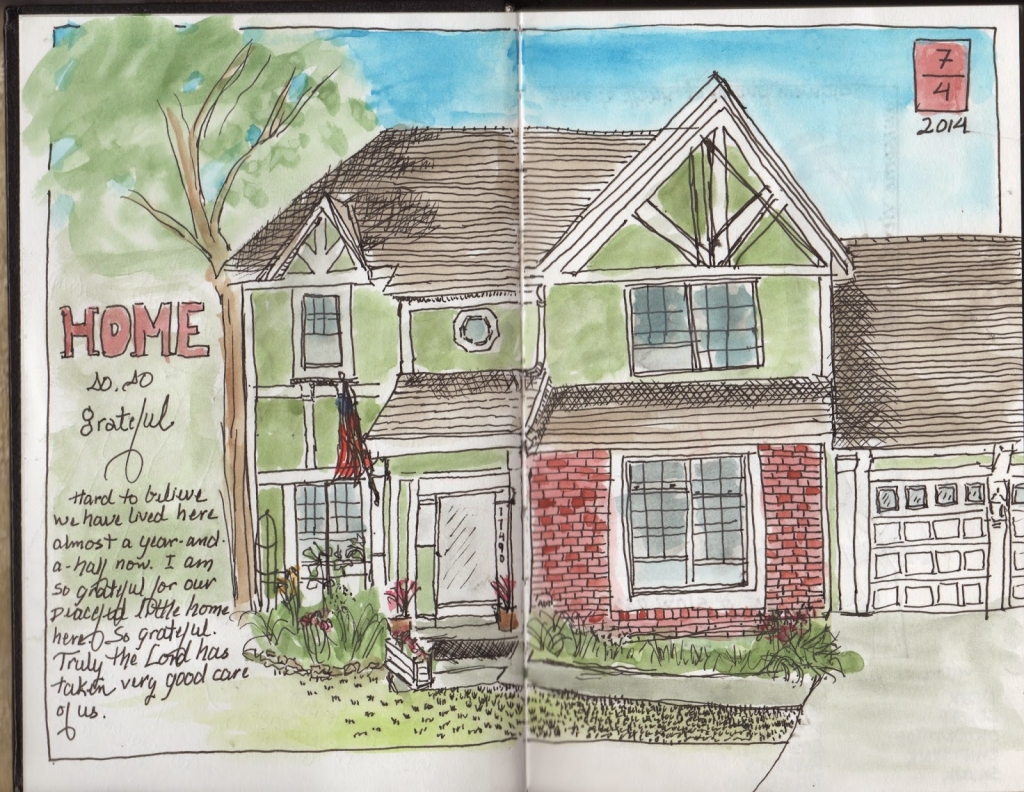 HOME
so. so
grateful
Hard to believe
we have lived here
almost a year-and-
a-half now. I am
so grateful for our
peaceful little home
here. So grateful.
Truly the Lord has
taken very good care
of us.
7
4
2014
17490